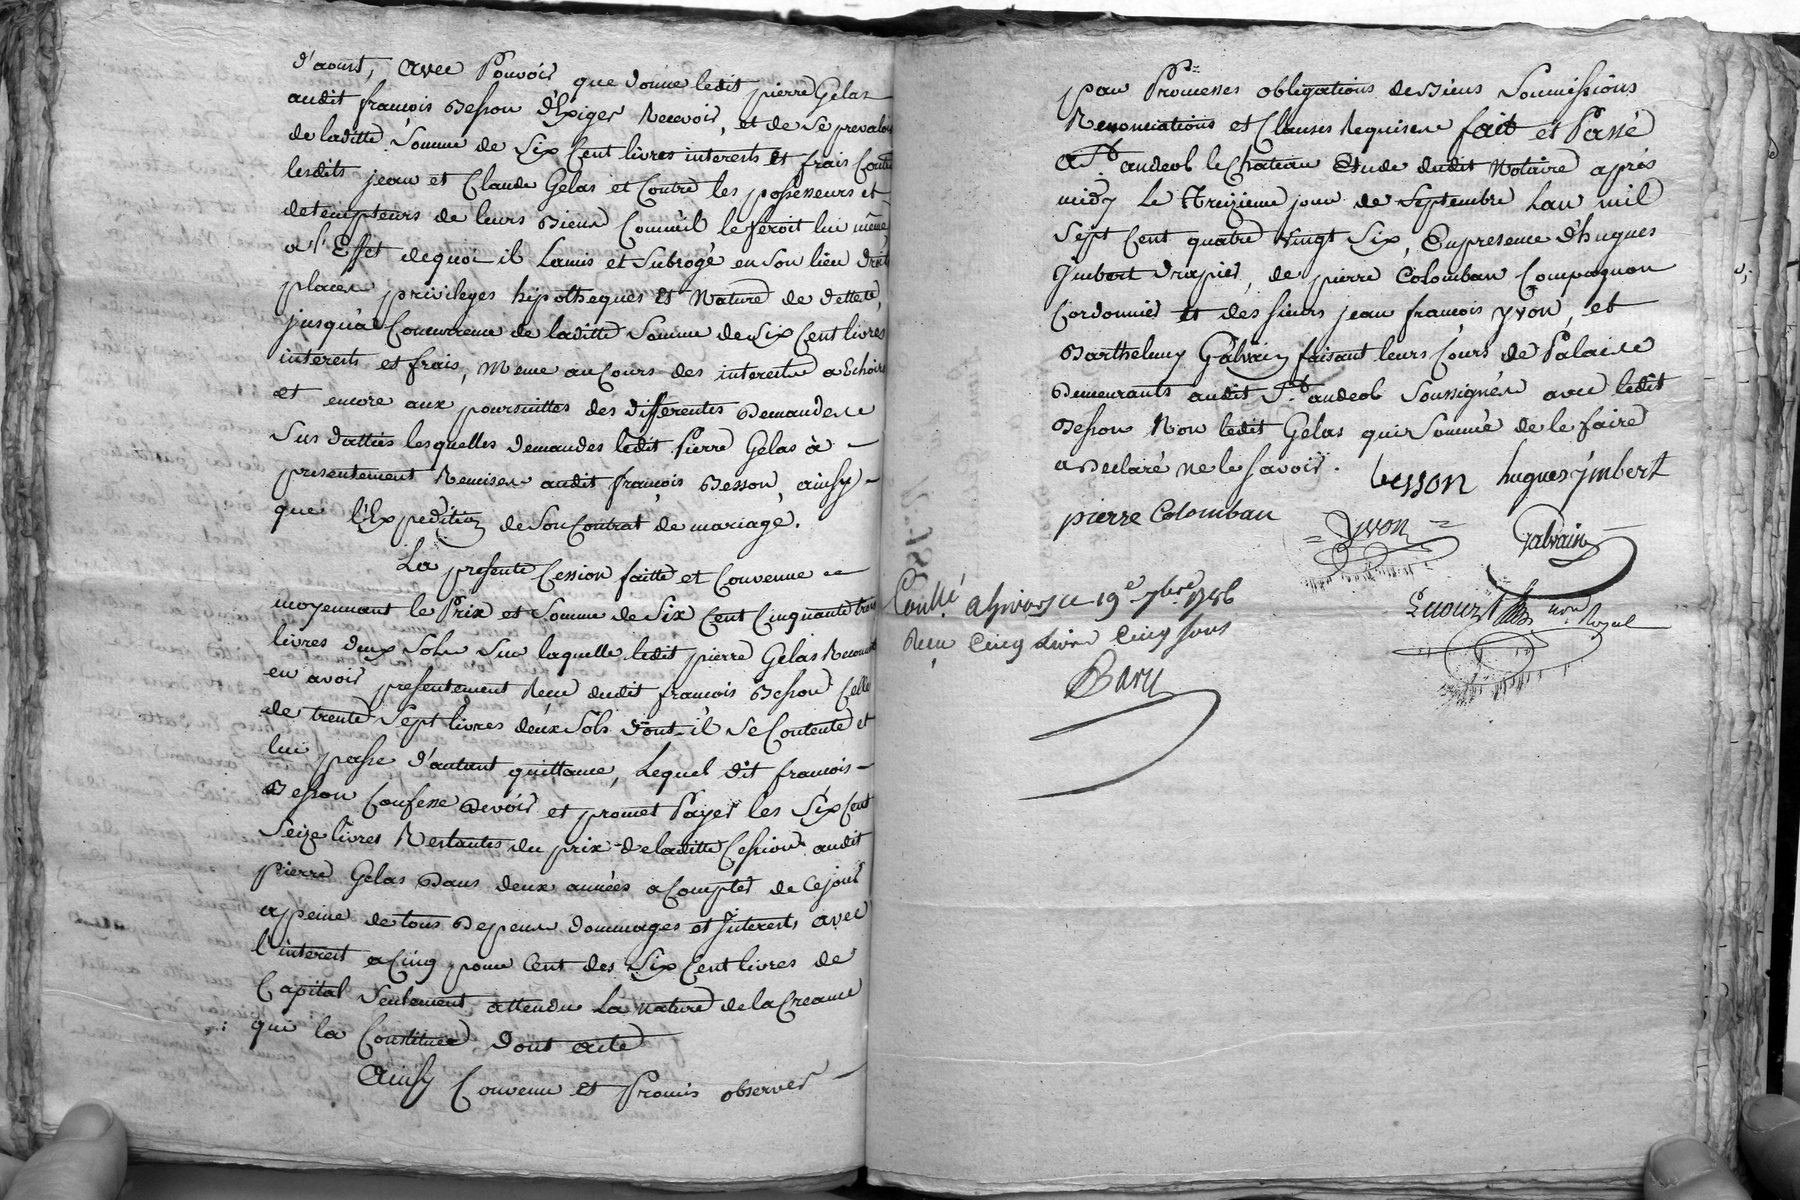 d'aoust, avec Pouvoir que donne ledit pierre Gelas
audit françois Besson d'Exiger Recevoir, et de se prevaloir
de laditte Somme de Six Cent livres interests et frais Contre
lesdits jean et Claude Gelas et Contre les possesseurs et
detempteurs de leurs Biens Comme il le feroit lui même
a l'Effet dequoi il Lamis et Subrogé en son lieu droits
places privileges hipotheques et Nature de dette,
jusqu'a Concurrence de laditte Somme de Six Cent livres
interests et frais, Meme au Cours des interests a Echoir
et encore aux poursuittes des differentes Demandes
Sus dattées lesquelles demandes ledit Pierre Gelas à
presentement Remises audit françois Besson, ainsy
que l'Expedition de Son Contrat de mariage.
La presente Cession faitte et Convenue
moyennant le Prix et Somme de Six Cent Cinquante trois
livres deux Sols Sur laquelle ledit pierre Gelas Reconnoit
en avoir presentement Reçu dudit françois Besson Celle
de trente Sept livres deux Sols dont il Se Contente et
lui passe d'autant quittance, Lequel dit françois
Besson Confesse Devoir et promet Payer les Six Cent
Seize livres Restantes du prix de laditte Cession audit
pierre Gelas Dans deux années a Compter de Cejour
a peine de tous Depens dommages et Interests, avec
l'interest a Cinq pour Cent des Six Cent livres de
Capital Seulement attendu La nature de la Creance
qui la Constitue dont acte
Ainsy Convenu et Promis observer
par Promesses obligations de Biens Soumissions
Renonciations et Clauses Requises fait et Passé
a St. andeol le Chateau Etude dudit Notaire après
midy Le Treizieme jour de Septembre Lan mil
Sept Cent quatre Vingt Six, En presence d'hugues
Imbert drapier, de pierre Colomban Compagnon
Cordonnier et des sieurs jean françois yvon, et
Barthelemy Galvain faisant leurs Cours de Palais
Demeurants audit St. andeol Soussignés avec ledit
Besson Non ledit Gelas qui Sommé de le faire
a Declaré ne le Savoir.
besson hugues jmbert
pierre Colomban yvon Galvain
Conllé a Givors ce 19e 7bre 1786
Reçu Cinq Livres Cinq Sous
nore Royal
Bary